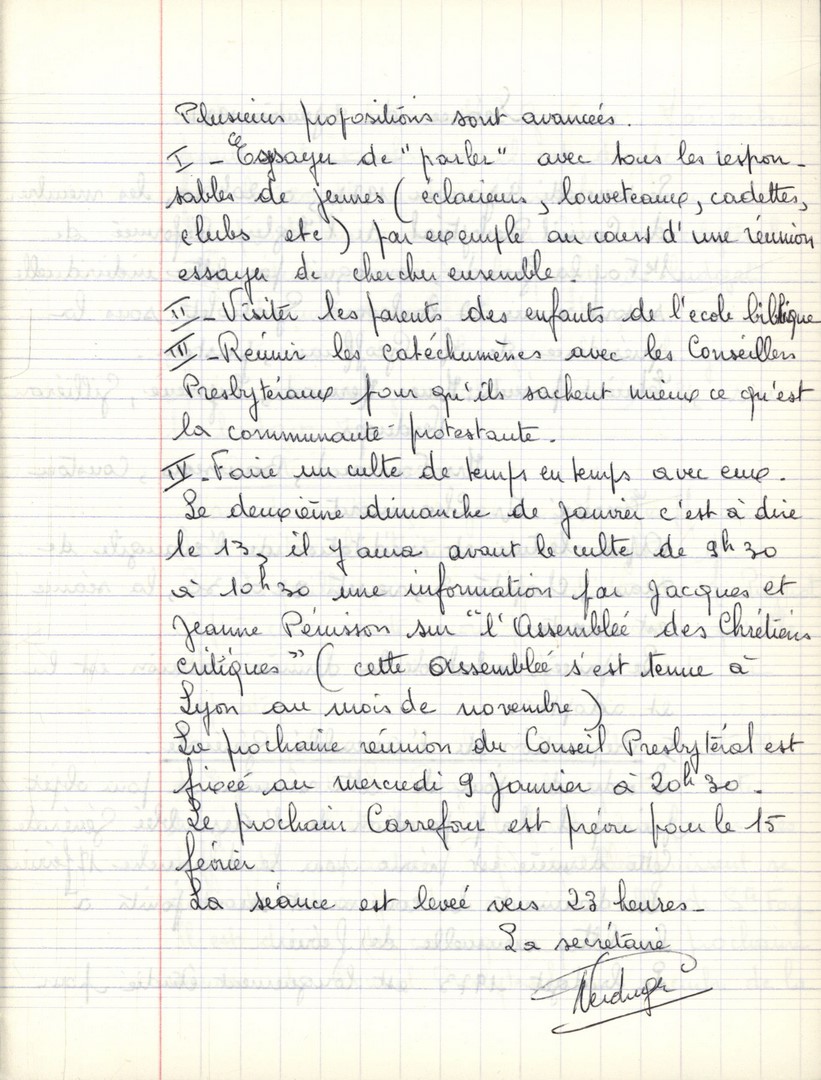 Plusieurs propositions sont avancées.
I - Essayer de "parler" avec tous les respon-
sables de jeunes (éclaireurs, louveteaux, cadettes,
clubs etc) par exemple au cours d'une réunion
essayer de chercher ensemble.
II - Visiter les parents des enfants de l'école biblique
III - Réunir les catéchumènes avec les Conseillers
Presbytéraux pour qu'ils sachent mieux ce qu'est
la communauté protestante.
IV - Faire un culte de temps en temps avec eux.
Le deuxième dimanche de Janvier c'est à dire
le 13, il y aura avant le culte de 9h30
à 10h30 une information par Jacques et
Jeanne Pénisson sur "l'Assemblée des Chrétiens
critiques" (cette assemblée s'est tenue à
Lyon au mois de novembre)
La prochaine réunion du Conseil Presbytéral est
fixée au mercredi 9 Janvier à 20h30.
Le prochain Carrefour est prévu pour le 15
février.
La séance est levée vers 23 heures-
La secrétaire